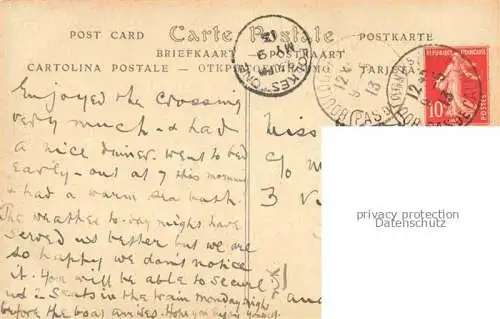 POST CARD Carte Postale POSTKARTE
BRIEFKAART
CARTOLINA POSTALE
12
5
13
BOULOGNE
(PAS DE CALAIS)
MY 9
13
REPUBLIQUE FRANÇAISE
10
POSTES
Enjoyed the crossing
very much & had
a nice dinner. went to bed
early – out at 7 this morning
& had a warm sea bath.
The weather to-day might have
served us better but we are
so happy we don't notice
it. You will be able to secure
us 2 seats in the train Monday night
before the boat arrives. Hope you
Miss
c/o
3
privacy protection
Datenschutz